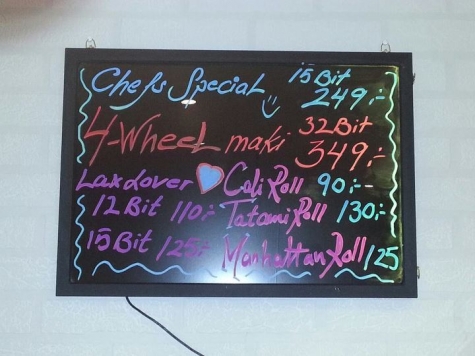 Chefs Special 15 Bit
249:-
4-Wheel maki 32 Bit
349:-
Laxlover Cali Roll 90:-
12 Bit 110:- Tatami Roll 130:-
15 Bit 125:- Manhattan Roll 125